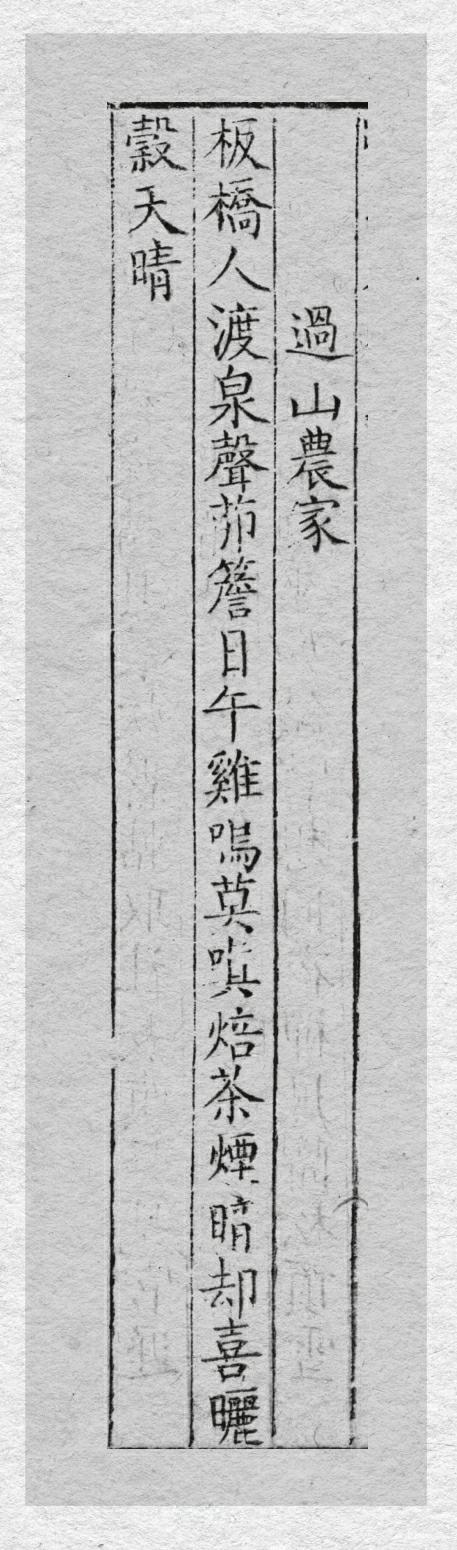 過山農家
板橋人渡泉聲茆簷日午雞鳴莫嗔焙茶煙晴却喜曬
穀天晴